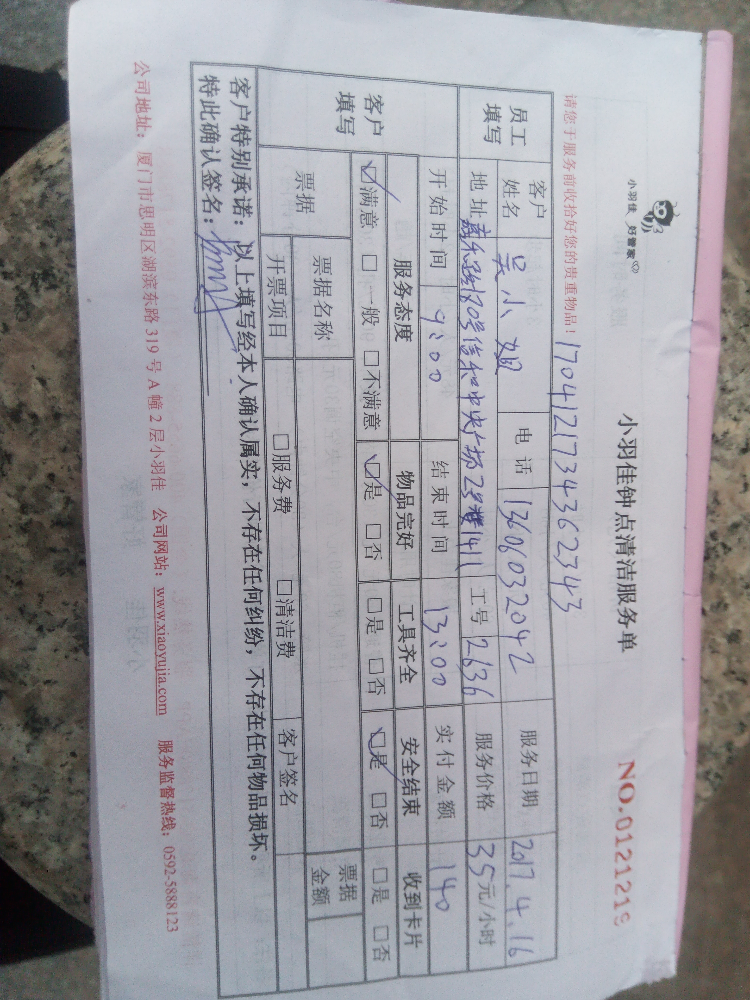 小羽佳 好管家
小羽佳钟点清洁服务单
NO.0121219
请您于服务前收拾好您的贵重物品!
1704121734362343
员工填写
客户姓名 吴小姐 电话 13606032042 服务日期: 2017.4.16
地址 嘉禾路170号信和中央广场2号楼1411 工号 2636 服务价格 35元/小时
开始时间 9:00 结束时间 13:00 实付金额 140
客户填写
服务态度 物品完好 工具齐全 安全结束 收到卡片
☑满意 □一般 □不满意 ☑是 □否 □是 □否 ☑是 □否 □是 □否
票据 票据名称 票据金额
开票项目 □服务费 □清洁费 客户签名
客户特别承诺:以上填写经本人确认属实,不存在任何纠纷,不存在任何物品损坏。
特此确认签名:
公司地址:厦门市思明区湖滨东路 319 号 A 幢 2 层小羽佳 公司网站:www.xiaoyujia.com 服务监督热线:0592-5888123